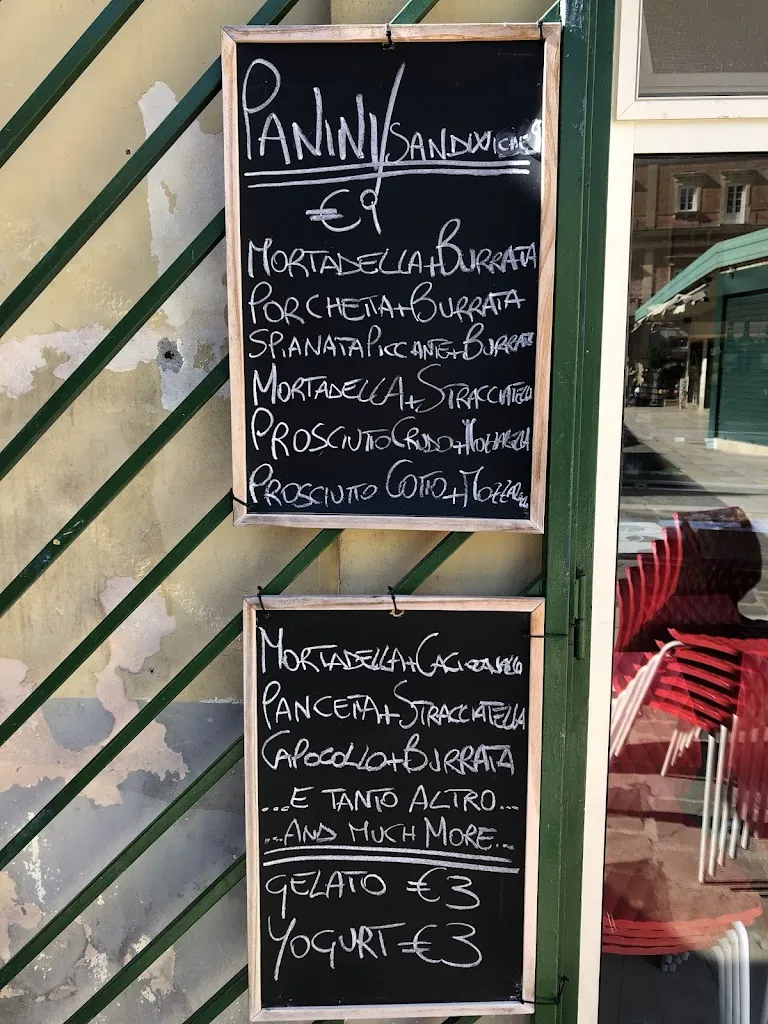 PANINI/SANDWICHES
€9
MORTADELLA+BURRATA
PORCHETTA+BURRATA
SPIANATA PICCANTE+BURRATA
MORTADELLA+STRACCIATELLA
PROSCIUTTO CRUDO+MOZZARELLA
PROSCIUTTO COTTO+MOZZARELLA
MORTADELLA+CACIOCAVALLO
PANCETTA+STRACCIATELLA
CAPOCOLLO+BURRATA
...E TANTO ALTRO...
...AND MUCH MORE...
GELATO €3
YOGURT=€3